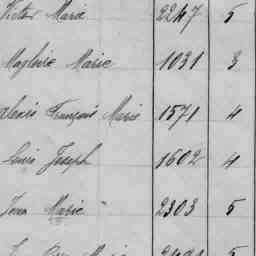 Victor Marie 2247 5
Magloire Marie 1031 3
Alexis François Marie 1571 4
Louis Joseph 1602 4
Jean Marie 2303 5
Marie 5